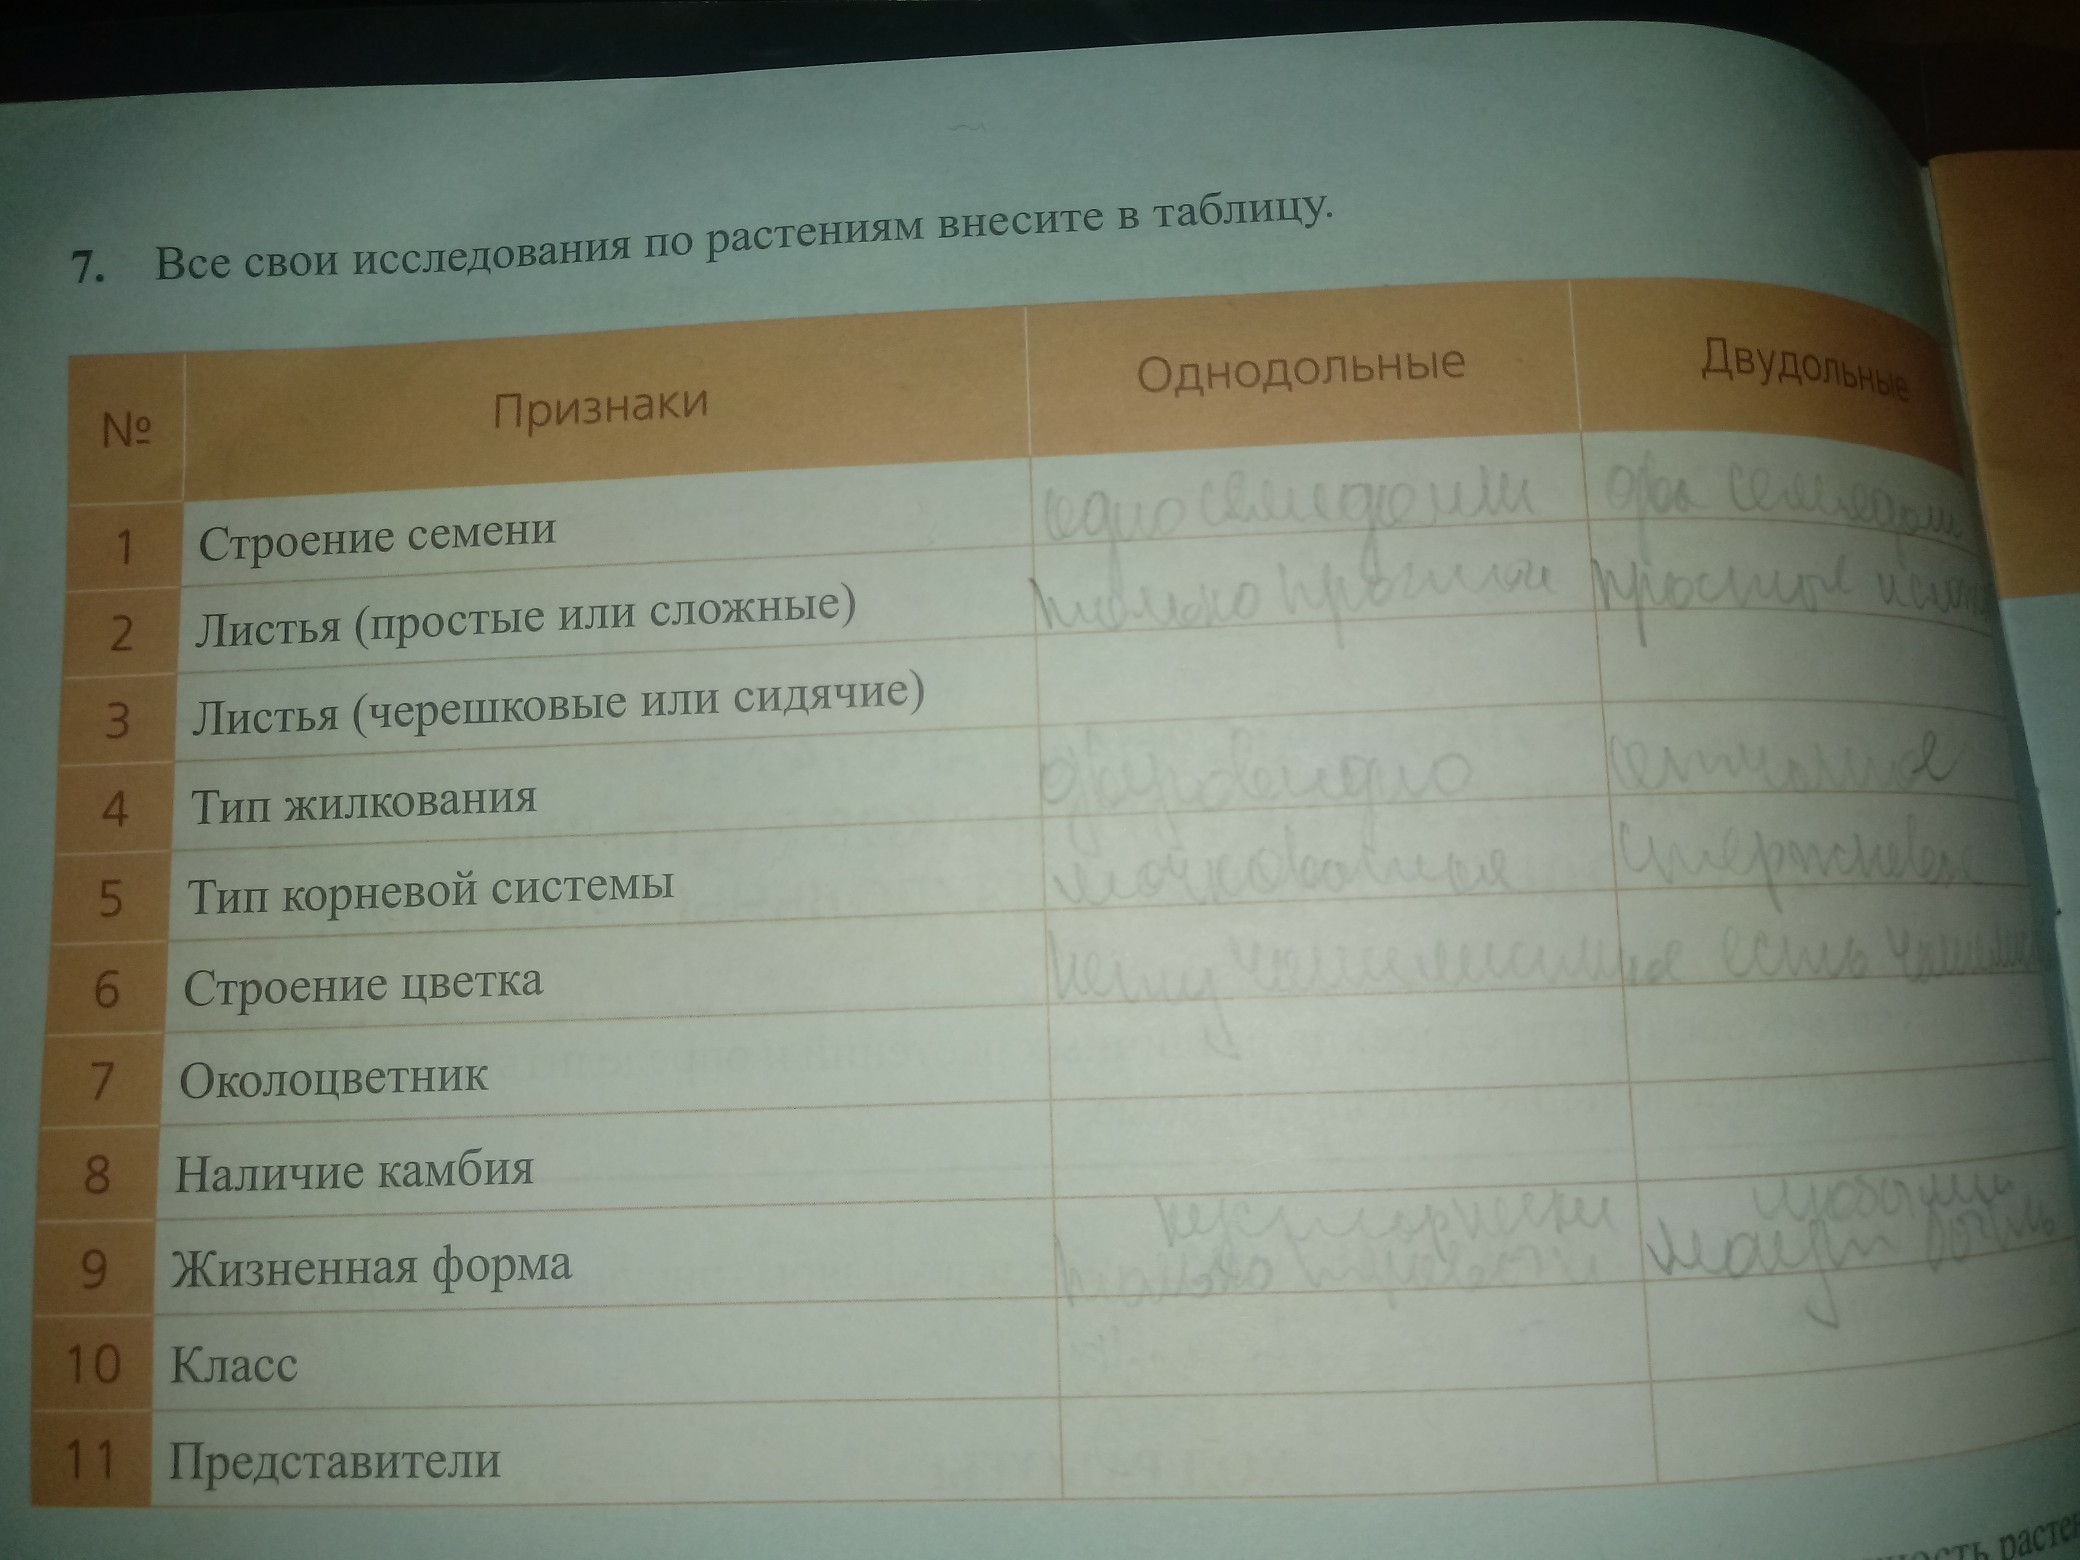 7. Все свои исследования по растениям внесите в таблицу.
№ Признаки Однодольные Двудольные
1 Строение семени одно семядоли два семядоли
2 Листья (простые или сложные) только простые простые и
3 Листья (черешковые или сидячие)
4 Тип жилкования сетчатое
5 Тип корневой системы мочковатая стержневая
6 Строение цветка нету чашелистика есть
7 Околоцветник
8 Наличие камбия
9 Жизненная форма только могут быть
любыми
10 Класс
11 Представители